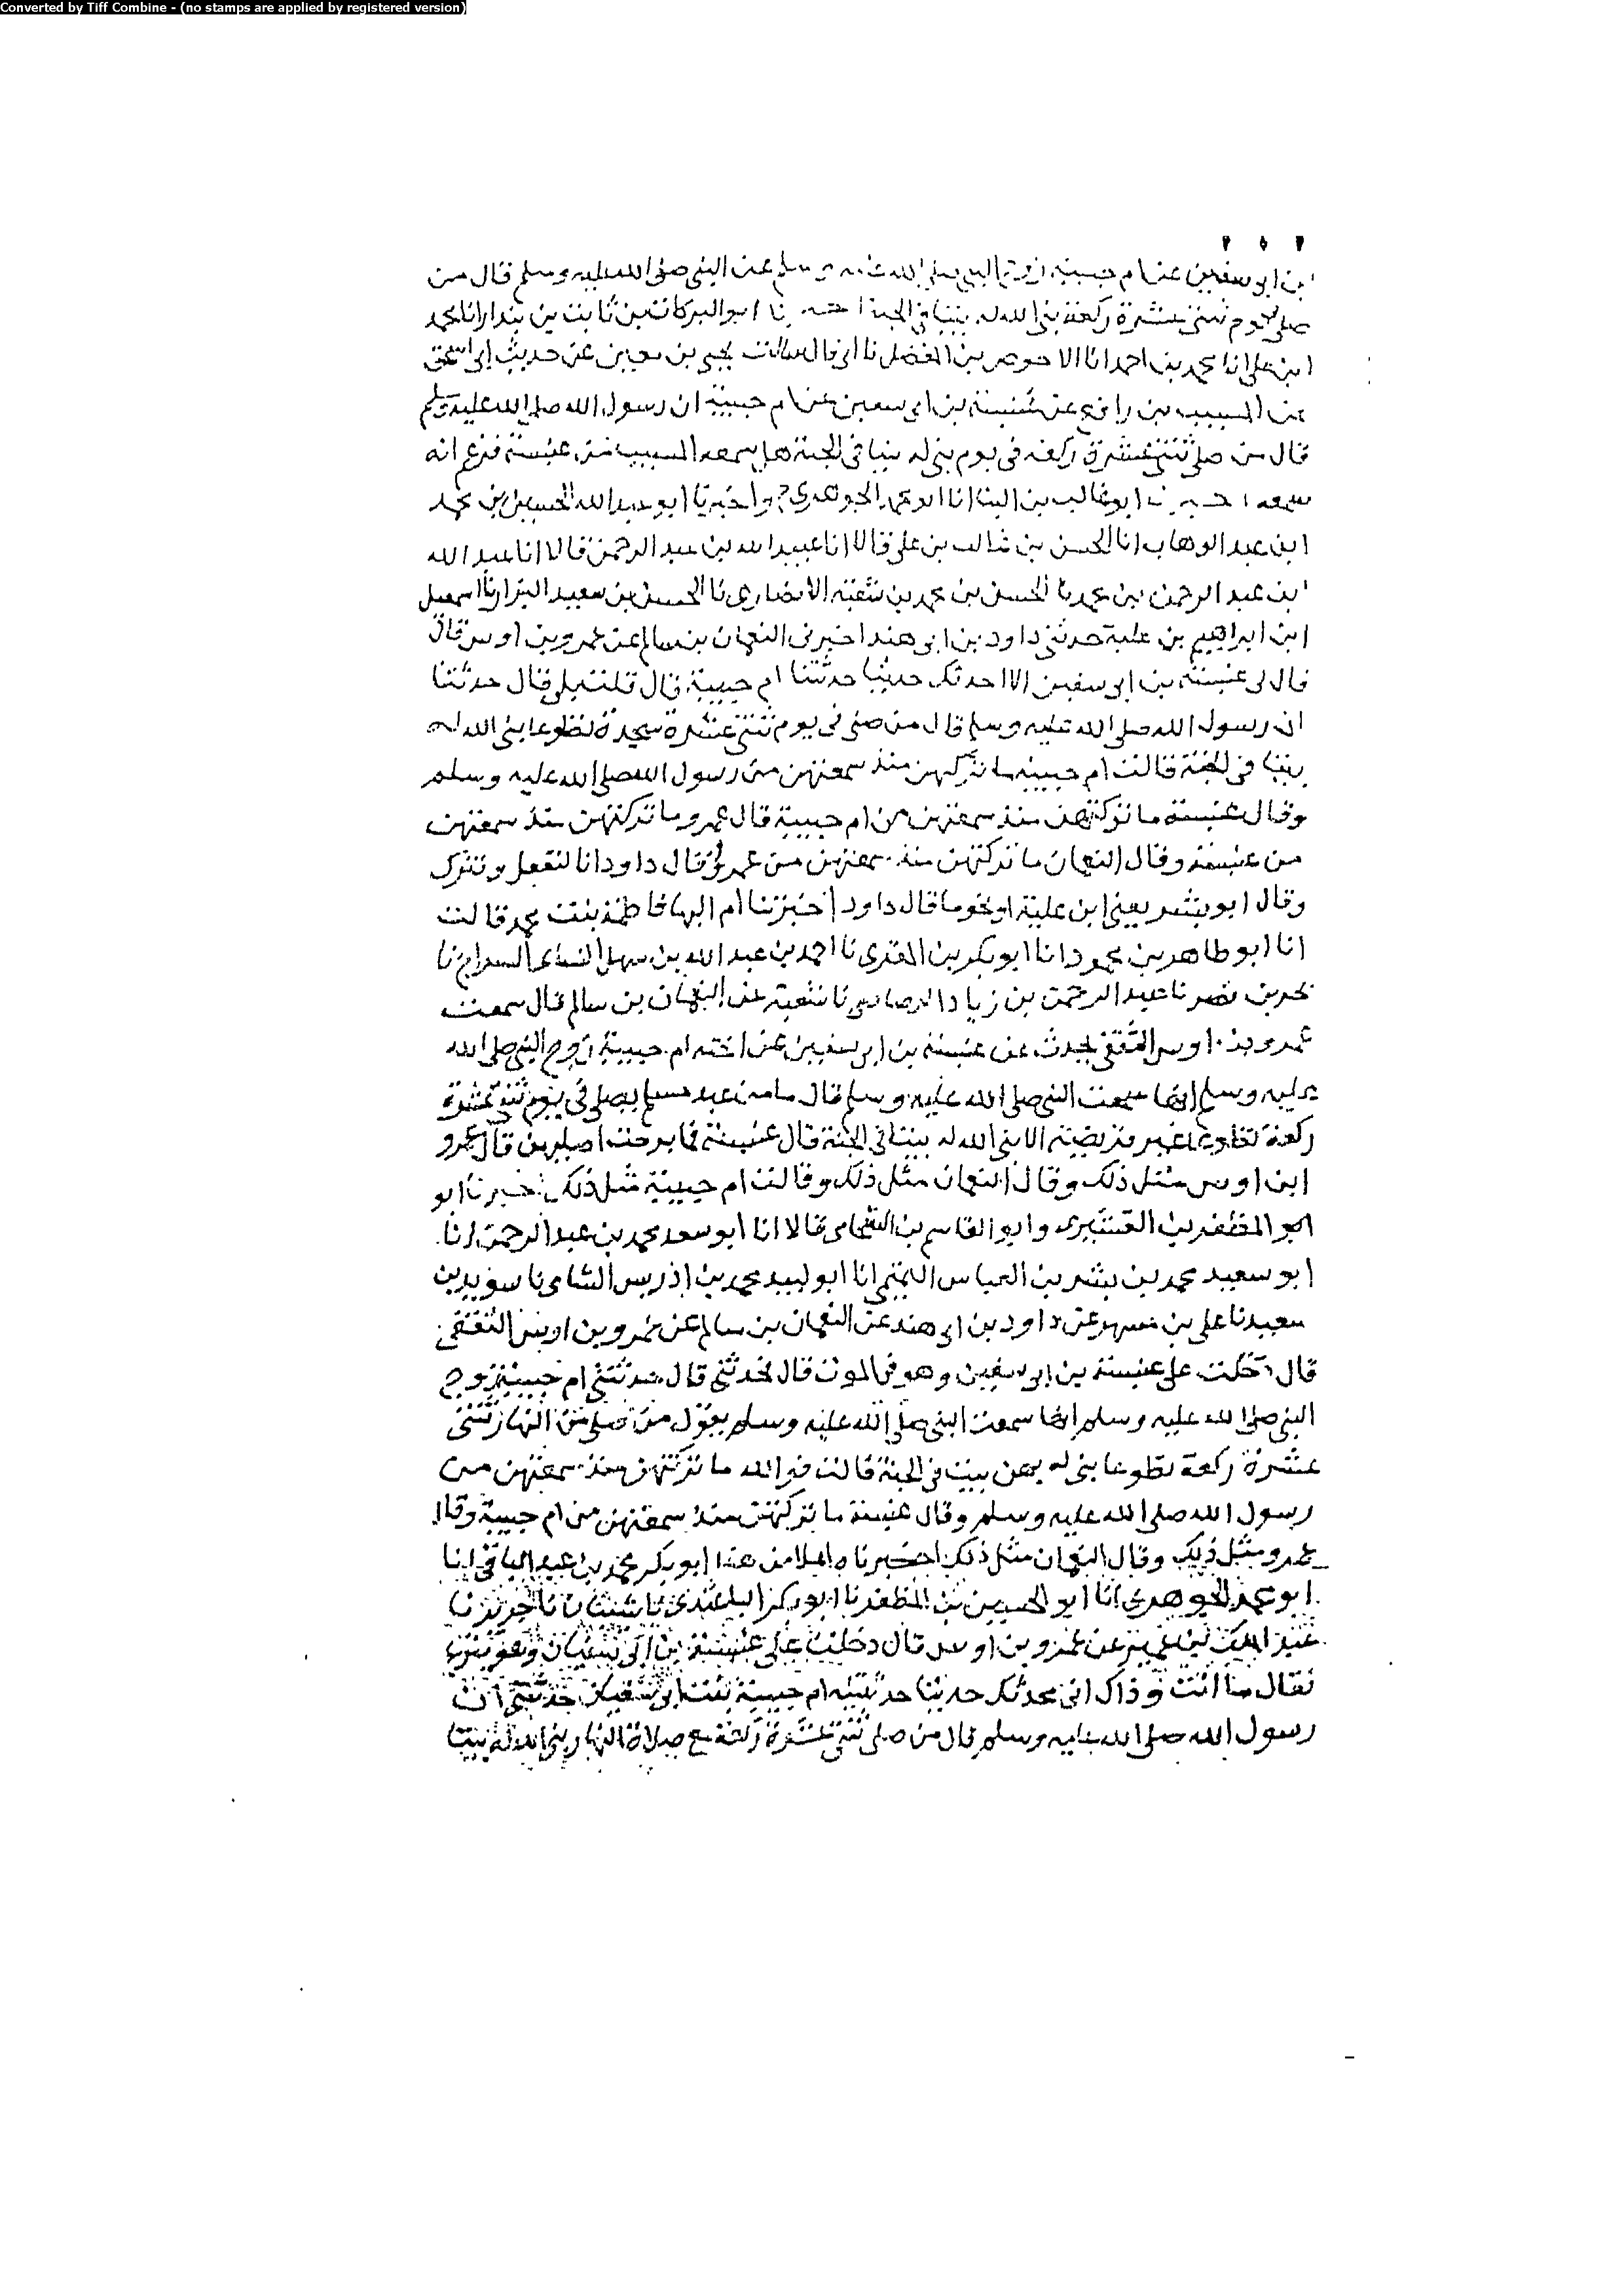 Converted by Tiff Combine - (no stamps are applied by registered version)
ابن ابو سفين عن ام حبيبة زوج النبي صلى الله عليه وسلم عن النبي صلى الله عليه وسلم قال من
صلى يوم ثنتى عشرة ركعة بنى الله له بيتا في الجنة انا ابو البركات بن ثابت بن بندار انا محمد
ابن على انا محمد بن احمد انا الاحوص بن المفضل نا ابى قال سالت يحيى بن معين عن حديث ابى اسحق
عن المسيب بن رافع عن عنبسة بن ابى سفين عن ام حبيبة ان رسول الله صلى الله عليه وسلم
قال من صلى ثنتى عشرة ركعة في يوم بنى له بيتا في الجنة هل سمعه المسيب من عنبسة فزعم انه
سمعه ابو غالب بن البنا انا ابو محمد الجوهرى ح واخبرنا ابو عبد الله الحسين بن محمد
ابن عبد الوهاب انا الحسن بن غالب بن على قالا انا عبيد الله بن عبد الرحمن قالا انا عبد الله
ابن عبد الرحمن بن محمد نا الحسن بن محمد بن شعبة الانصارى نا الحسن بن سعيد البزار نا اسمعيل
ابن ابراهيم بن علية حدثنى داود بن ابى هند اخبرنى النعمان بن سالم عن عمرو بن اوس قال
قال لى عنبسة بن ابى سفين الا احدثك حديثا حدثتنا ام حبيبة قال قلت بلى قال حدثتنا
ان رسول الله صلى الله عليه وسلم قال من صلى في يوم ثنتى عشرة سجدة تطوعا بنى الله له
بيتا في الجنة قالت ام حبيبة ما تركتهن منذ سمعتهن من رسول الله صلى الله عليه وسلم
وقال عنبسة ما تركتهن منذ سمعتهن من ام حبيبة قال عمرو ما تركتهن منذ سمعتهن
من عنبسة وقال النعمان ما تركتهن منذ سمعتهن من عمرو وقال داود انا لنفعل ونترك
وقال ابو بشر يعنى ابن علية او نحو ما قال داود اخبرتنا ام البها فاطمة بنت محمد قالت
انا ابو طاهر بن محمود انا ابو بكر بن المقرى نا احمد بن عبد الله بن سهل السراج نا
نصر نا عبد الرحمن بن زياد الرصاصى نا شعبة عن النعمان بن سالم قال سمعت
عمرو بن اوس الثقفى يحدث عن عنبسة بن ابى سفين عن اخته ام حبيبة زوج النبي صلى الله
عليه وسلم انها سمعت النبي صلى الله عليه وسلم قال ما من عبد مسلم يصلى في يوم ثنتى عشرة
ركعة تطوعا غير فريضة الا بنى الله له بيتا في الجنة قال عنبسة فما برحت اصليهن قال عمرو
ابن اوس مثل ذلك وقال النعمان مثل ذلك وقالت ام حبيبة مثل ذلك اخبرنا ابو
ابو المظفر بن القشيرى وابو القاسم بن الشحامى قالا انا ابو سعد محمد بن عبد الرحمن انا
ابو سعيد محمد بن بشر بن العباس التميمى انا ابو لبيد محمد بن ادريس الشامى نا سويد بن
سعيد نا على بن مسهر عن داود بن ابى هند عن النعمان بن سالم عن عمرو بن اويس الثقفى
قال دخلت على عنبسة بن ابى سفين وهو في الموت قال فحدثنى قال حدثتنى ام حبيبة زوج
النبي صلى الله عليه وسلم انها سمعت النبي صلى الله عليه وسلم يقول من صلى من النهار ثنتى
عشرة ركعة تطوعا بنى له بهن بيت في الجنة قالت فوالله ما تركتهن منذ سمعتهن من
رسول الله صلى الله عليه وسلم وقال عنبسة ما تركتهن منذ سمعتهن من ام حبيبة وقال
عمرو مثل ذلك وقال النعمان مثل ذلك اخبرناه ابو بكر محمد بن عبد الباقى انا
ابو محمد الجوهرى انا ابو الحسين بن المظفر نا ابو بكر الباغندى نا شيبان نا جرير نا
عبد الملك بن عمير عن عمرو بن اوس قال دخلت على عنبسة بن ابى سفيان وهو
فقال ما انت وذاك انى محدثك حديثا حدثتنيه ام حبيبة بنت ابى سفيان حدثتنى ان
رسول الله صلى الله عليه وسلم قال من صلى ثنتى عشرة ركعة مع صلاة النهار بنى الله له بيتا